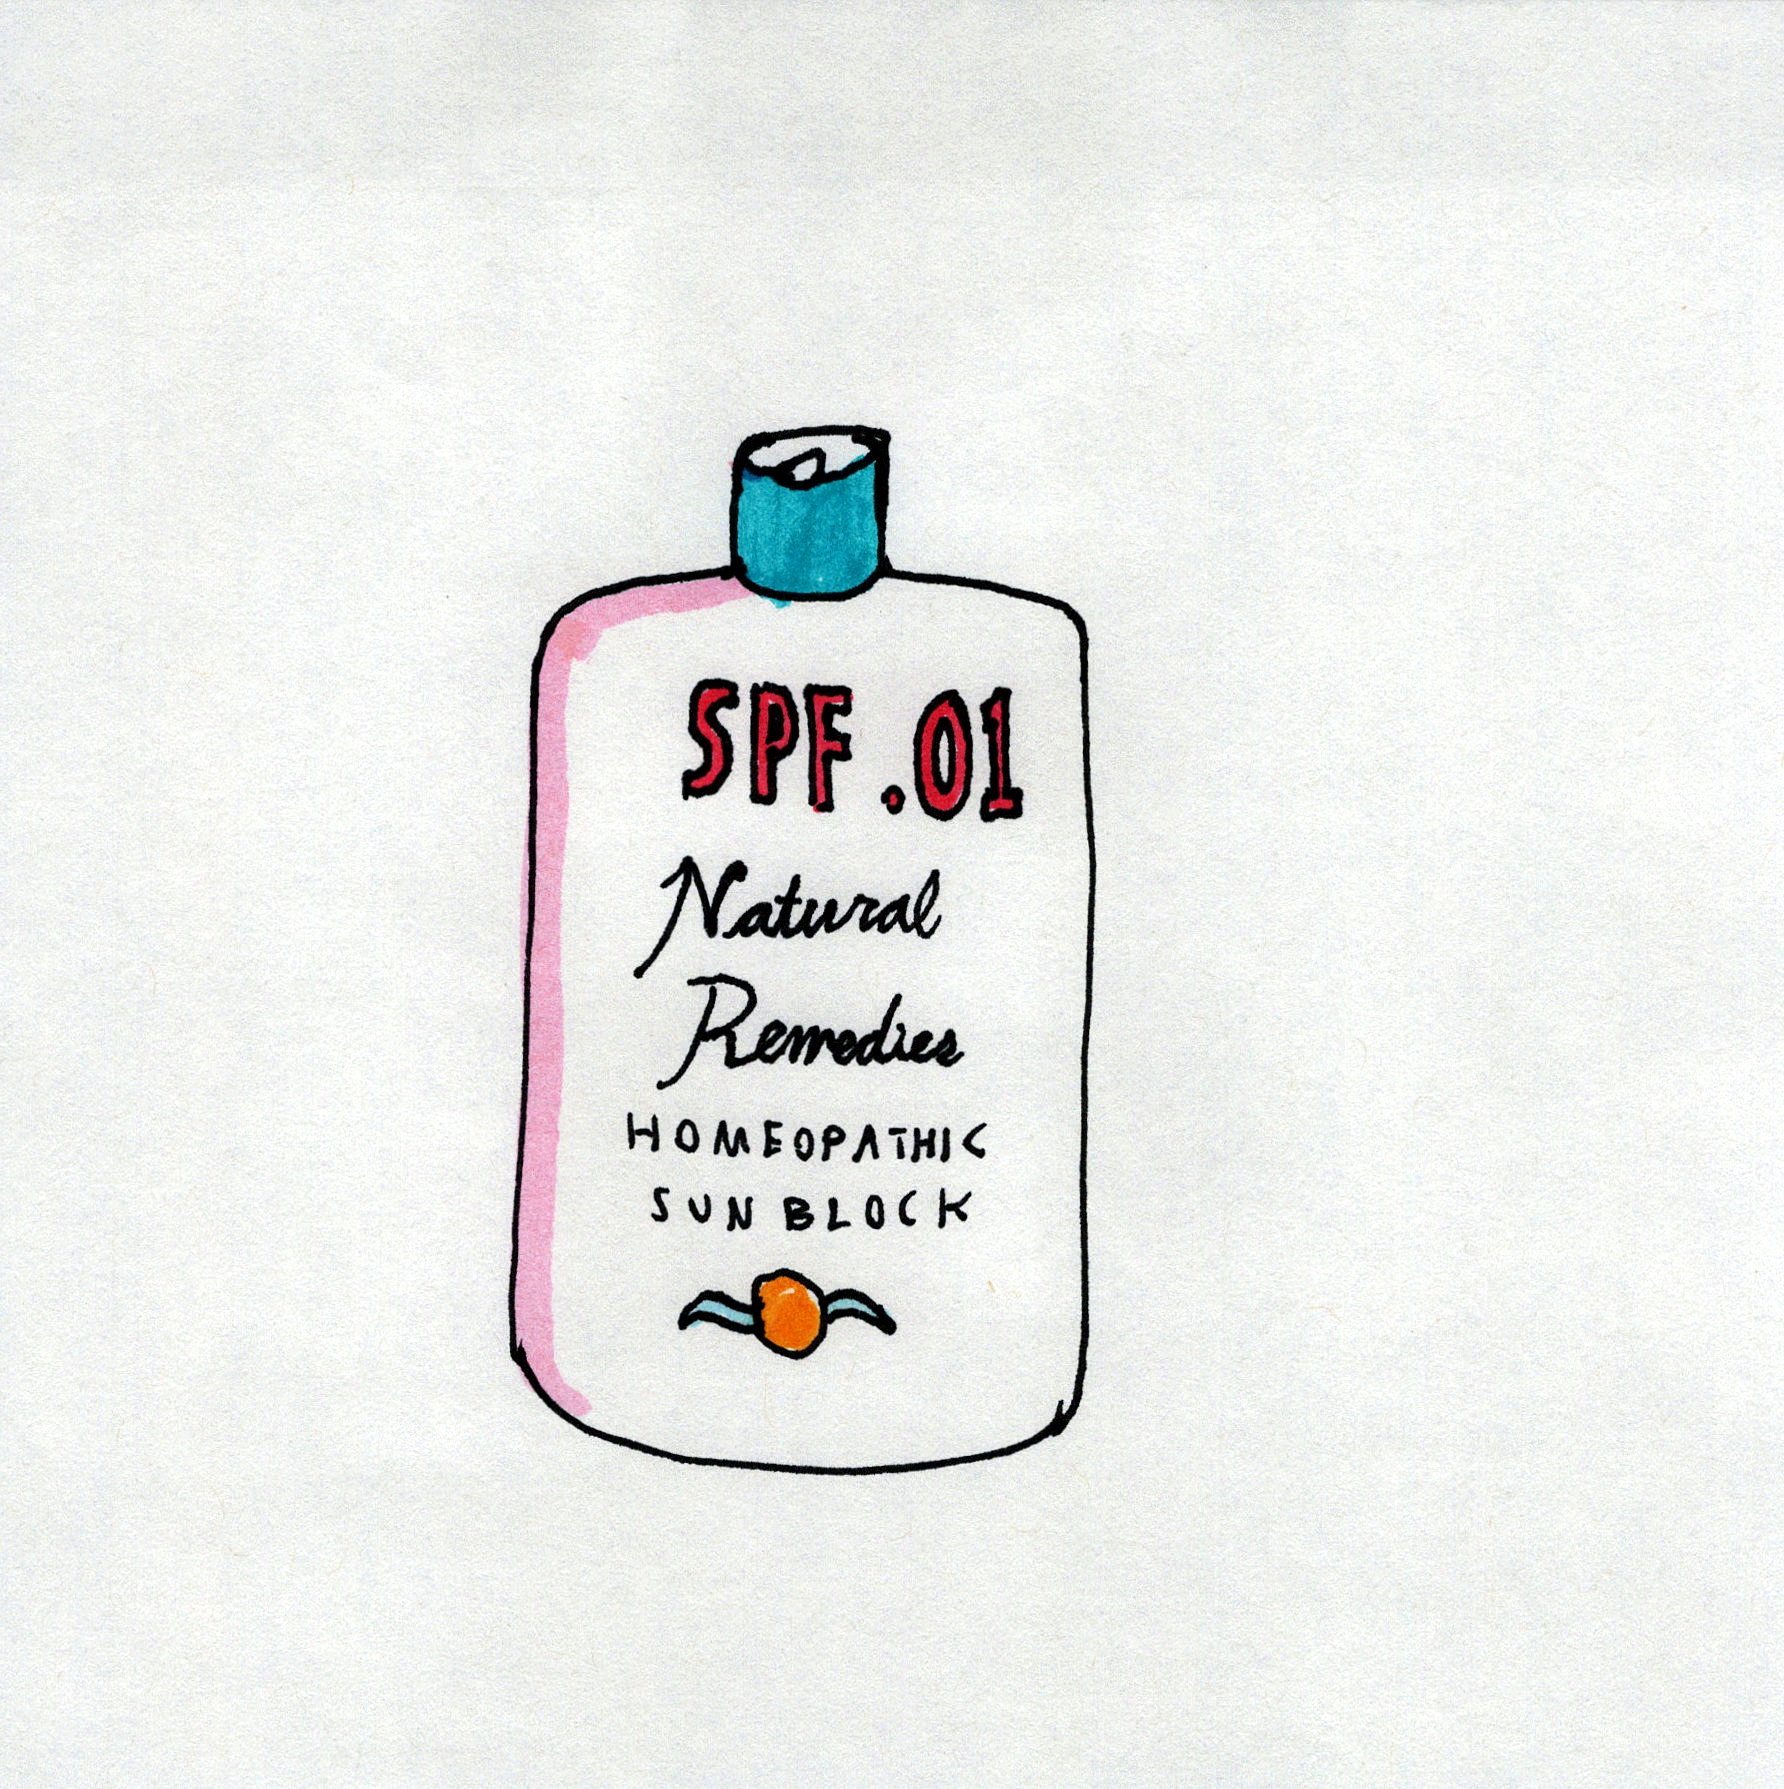 SPF .01
Natural
Remedies
HOMEOPATHIC
SUN BLOCK